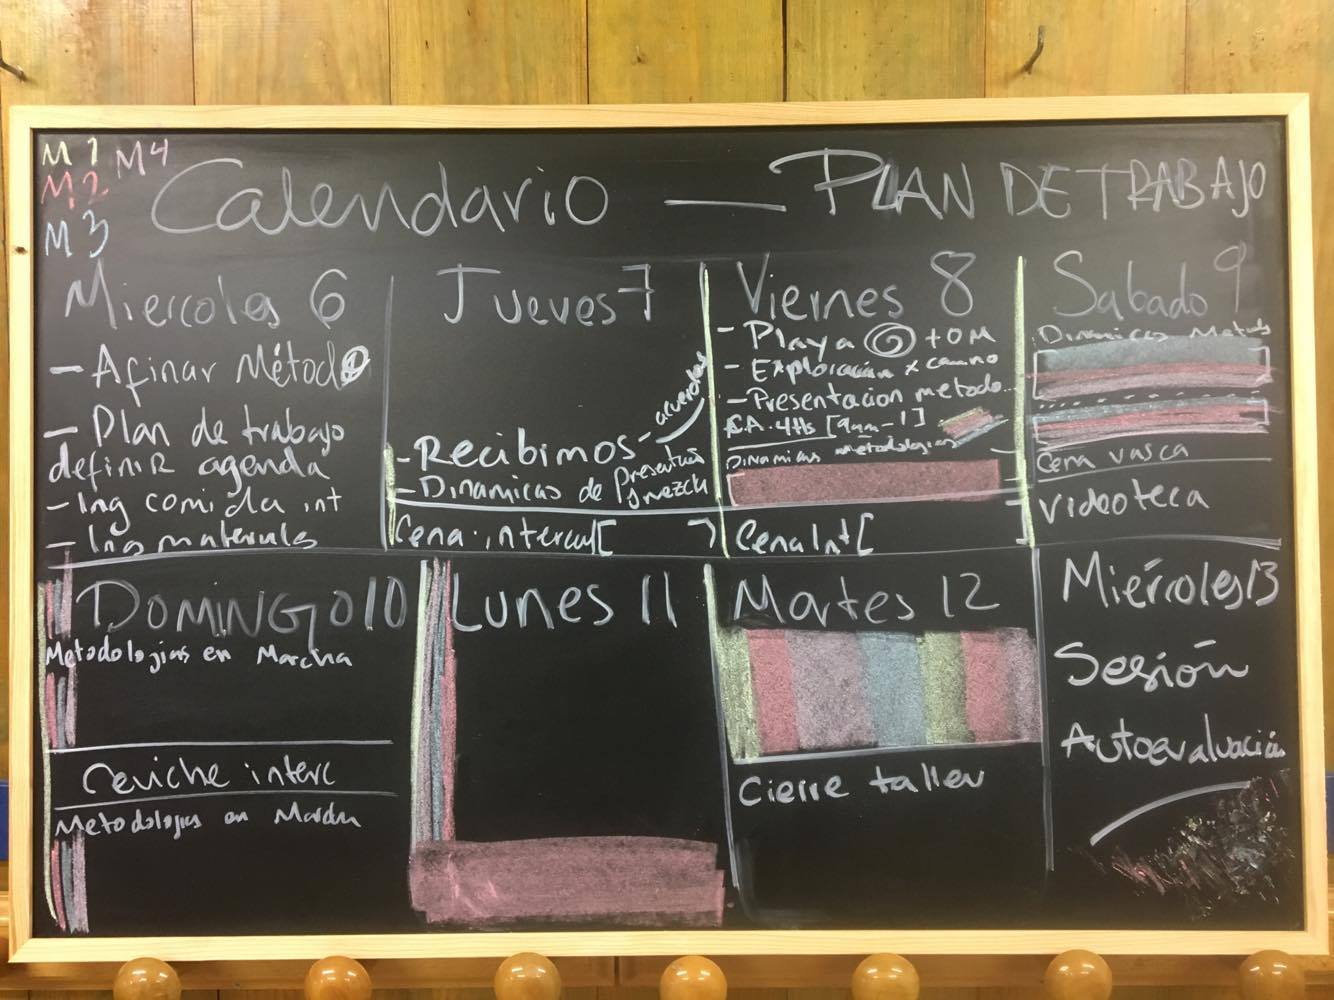 M 1 M4
M2
M 3
Calendario — PLAN DE TRABAJO
Miercoles 6
- Afinar Método
- Plan de trabajo
definir agenda
- Ing comida int
- Ing materiales
Jueves 7
- Recibimos - acuerdos
- Dinamicas de Presentas
y mezcla
Cena intercul [ ]
Viernes 8
- Playa + OM
- Exploración x camino
- Presentacion metodo...
C.A. 4Hs [9am-1]
Dinamicas metodologias
Cena Int [
Sabado 9
Dinamicas Metods
Cena vasca
Videoteca
DOMINGO 10
Metodologias en Marcha
Ceviche interc
Metodologias en Marcha
Lunes 11
Martes 12
Cierre taller
Miércoles 13
Sesión
Autoevaluación